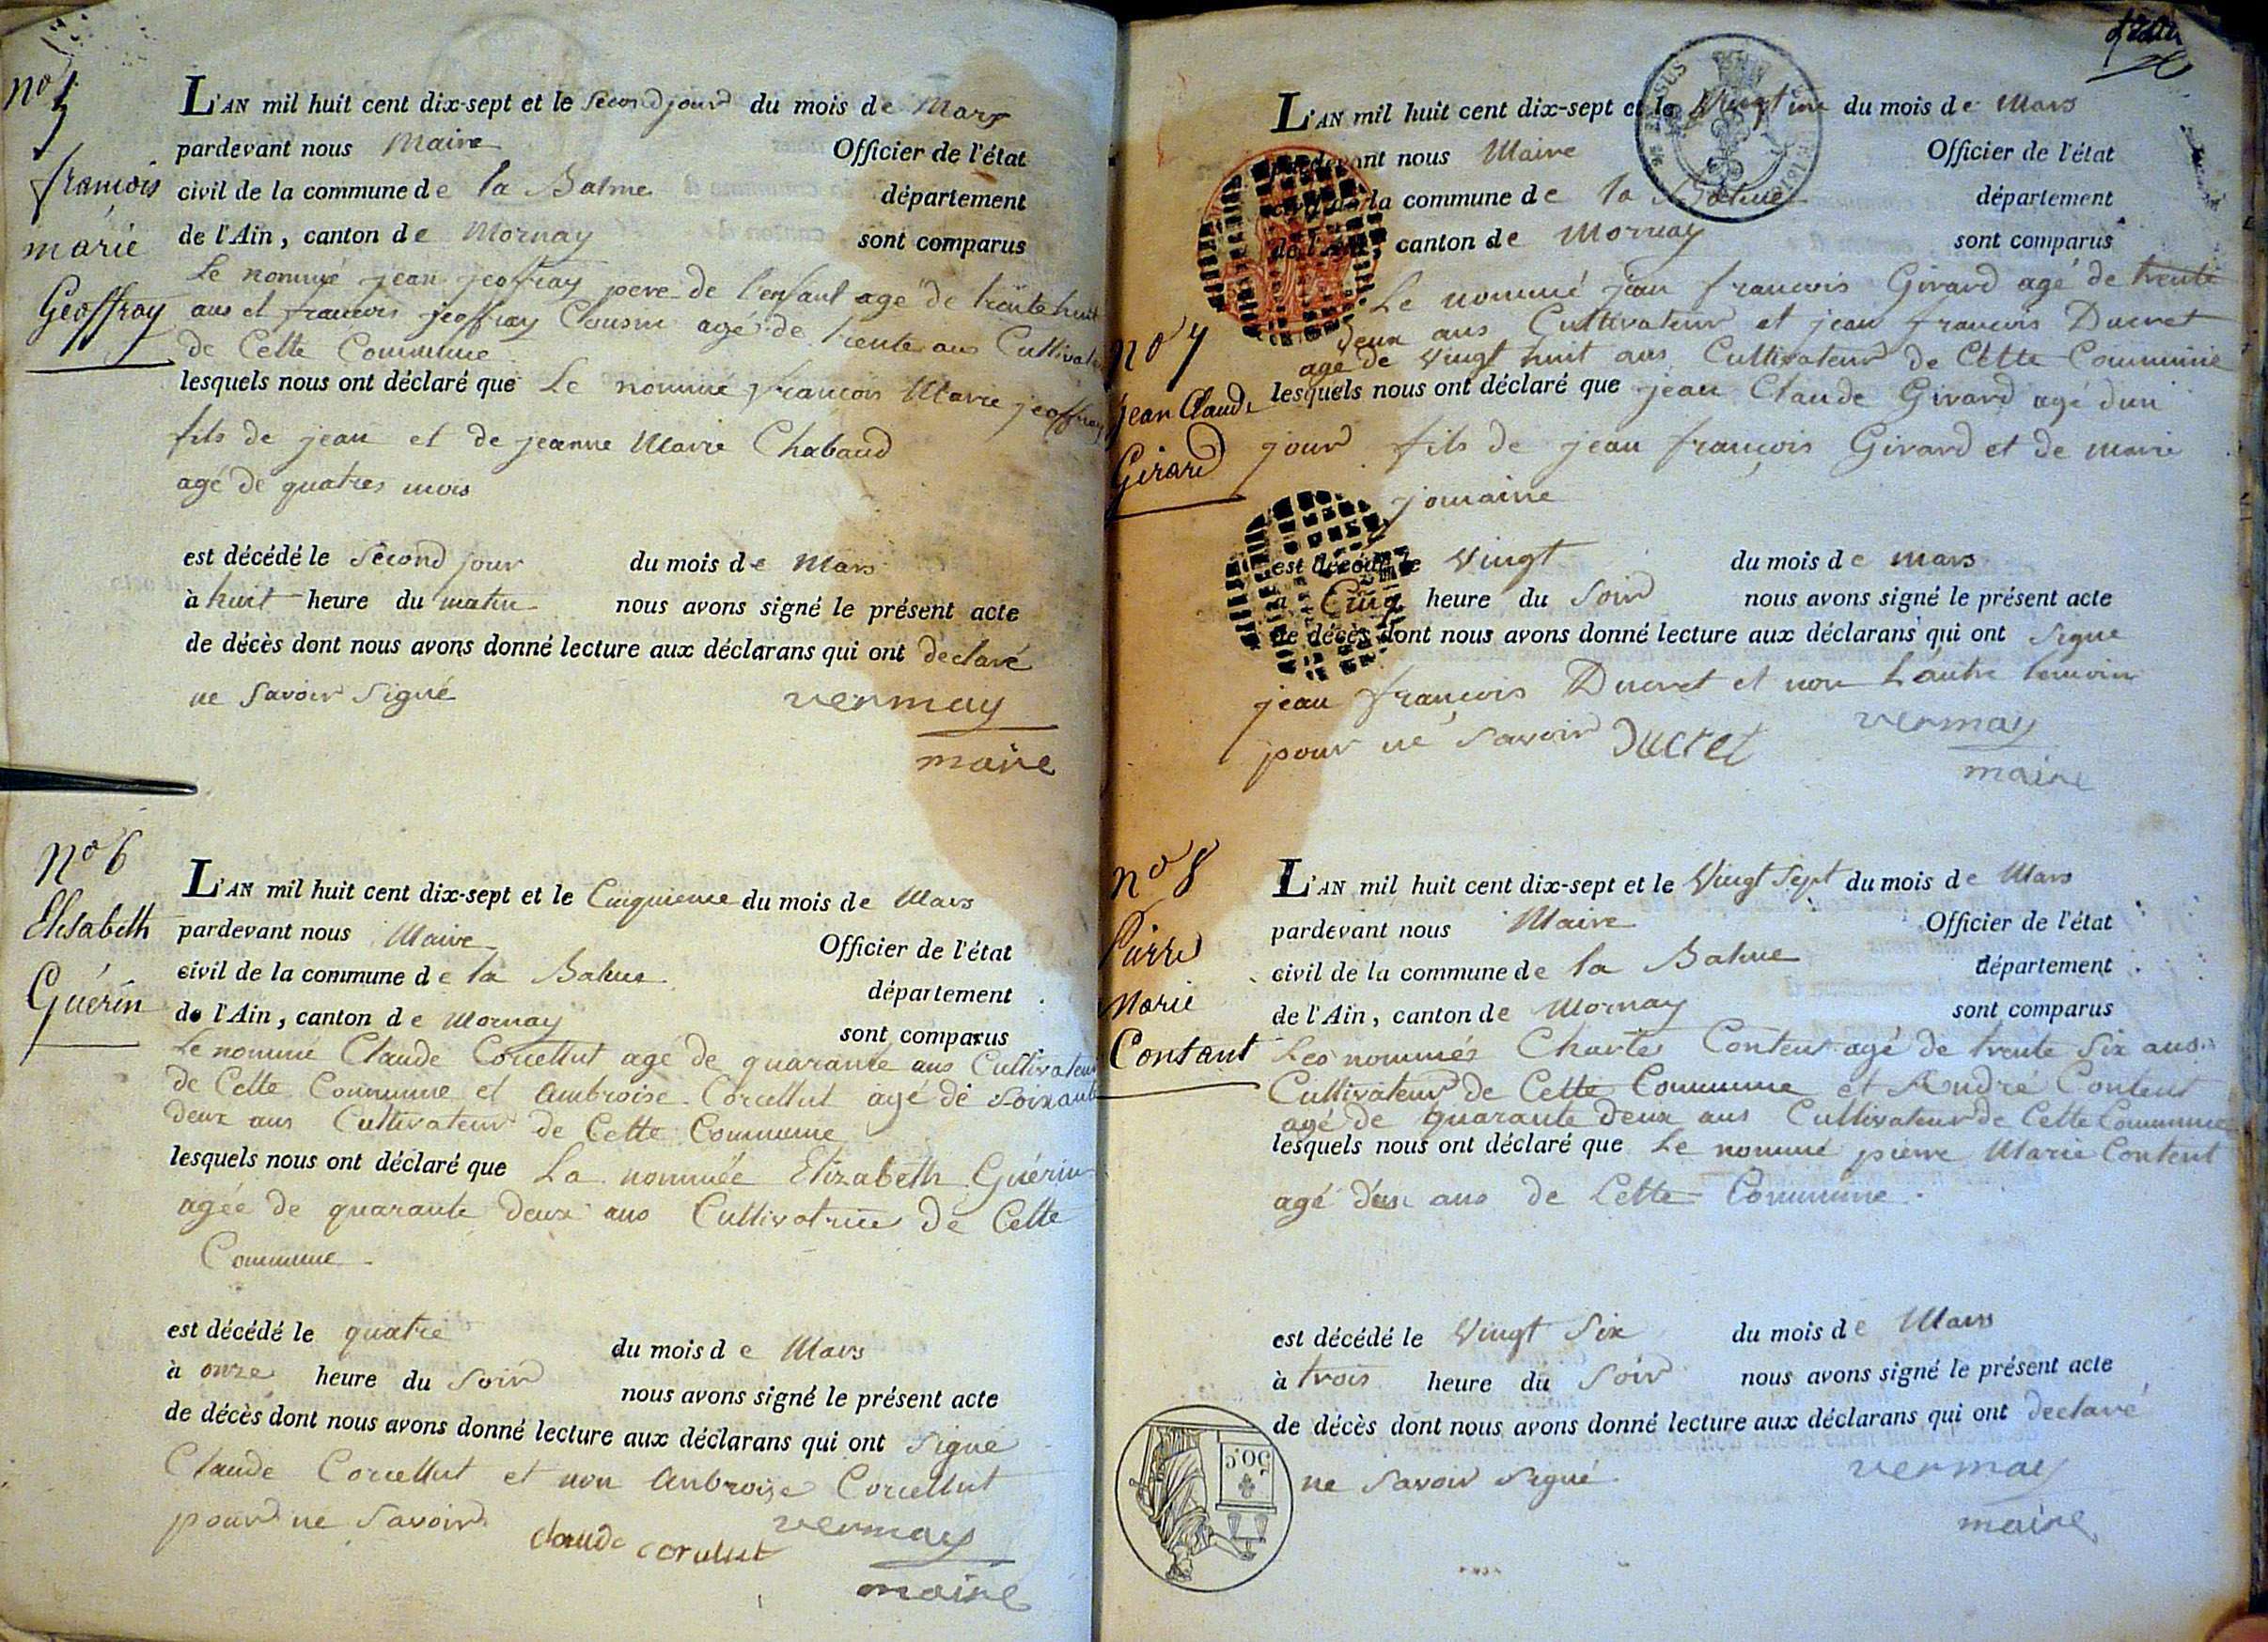 no 5
françois
marie
Geoffray
L'AN mil huit cent dix-sept et le second jour du mois de Mars
pardevant nous Maire Officier de l'état
civil de la commune de la Balme département
de l'Ain, canton de Mornay sont comparus
Le nommé jean jeoffray pere de l'enfant agé de trente huit
ans et francois jeoffray Cousin agé de trente ans Cultivateur
de Cette Commune
lesquels nous ont déclaré que Le nommé françois Marie jeoffray
fils de jean et de jeanne Marie Chabaud
agé de quatres mois
est décédé le second jour du mois de Mars
à huit heure du matin nous avons signé le présent acte
de décès dont nous avons donné lecture aux déclarans qui ont declaré
ne savoir signé vermay
maire
no 6
Elisabeth
Guérin
L'AN mil huit cent dix-sept et le Cinquieme du mois de Mars
pardevant nous Maire Officier de l'état
civil de la commune de la Balme département
de l'Ain, canton de Mornay sont comparus
Le nommé Claude Corcellut agé de quarante ans Cultivateur
de Cette Commune et ambroise Corcellut agé de soixante
deux ans Cultivateur de Cette Commune
lesquels nous ont déclaré que La nommée Elizabeth Guérin
agée de quarante deux ans Cultivatrice de Cette
Commune
est décédé le quatre du mois de Mars
à onze heure du soir nous avons signé le présent acte
de décès dont nous avons donné lecture aux déclarans qui ont signé
Claude Corcellut et non Ambroise Corcellut
pour ne savoir vermay
claude corcellut
maire
no 7
jean Claude
Girard
L'AN mil huit cent dix-sept et le du mois de Mars
pardevant nous Maire Officier de l'état
civil de la commune de la Balme département
de l'Ain, canton de Mornay sont comparus
Le nommé jean francois Girard agé de trente
deux ans Cultivateur et jean francois Ducret
agé de vingt huit ans Cultivateur de Cette Commune
lesquels nous ont déclaré que jean Claude Girard agé dun
jour fils de jean françois Girard et de marie
jomaine
est décédé le vingt du mois de mars
à Cinq heure du soir nous avons signé le présent acte
de décès dont nous avons donné lecture aux déclarans qui ont signe
jean françois Ducret et non L'autre temoin
pour ne savoir Ducret vermay
maire
no 8
Pierre
Marie
Contant
L'AN mil huit cent dix-sept et le Vingt sept du mois de Mars
pardevant nous Maire Officier de l'état
civil de la commune de la Balme département
de l'Ain, canton de Mornay sont comparus
Les nommés Charles Content agé de trente six ans
Cultivateur de Cette Commune et André Content
agé de quarante deux ans Cultivateur de Cette Commune
lesquels nous ont déclaré que Le nommé pierre Marie Content
agé ans de Cette Commune
est décédé le vingt six du mois de Mars
à trois heure du soir nous avons signé le présent acte
de décès dont nous avons donné lecture aux déclarans qui ont declaré
ne savoir signé vermay
maire
50 c.